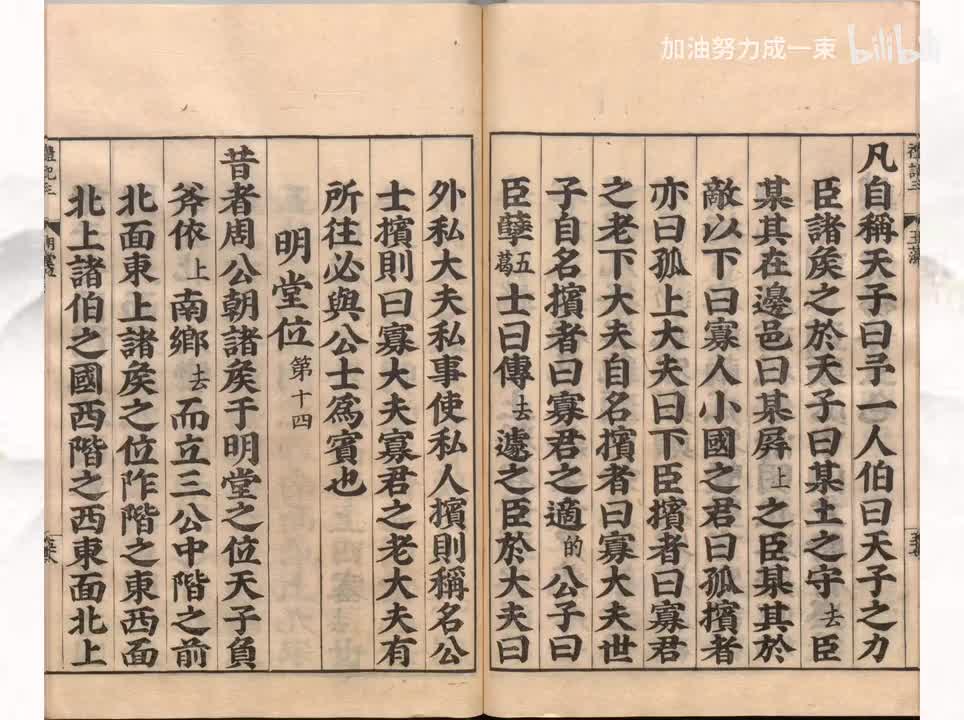 加油努力成一束
bilibili
凡自稱天子曰予一人伯曰天子之力
臣諸矦之於天子曰某土之守去臣
某其在邊邑曰某屏上之臣某其於
敵以下曰寡人小國之君曰孤擯者
亦曰孤上大夫曰下臣擯者曰寡君
之老下大夫自名擯者曰寡大夫世
子自名擯者曰寡君之適的公子曰
臣孽五葛士曰傳去遽之臣於大夫曰
外私大夫私事使私人擯則稱名公
士擯則曰寡大夫寡君之老大夫有
所往必與公士爲賓也
明堂位第十四
昔者周公朝諸矦于明堂之位天子負
斧依上南鄉去而立三公中階之前
北面東上諸矦之位阼階之東西面
北上諸伯之國西階之西東面北上